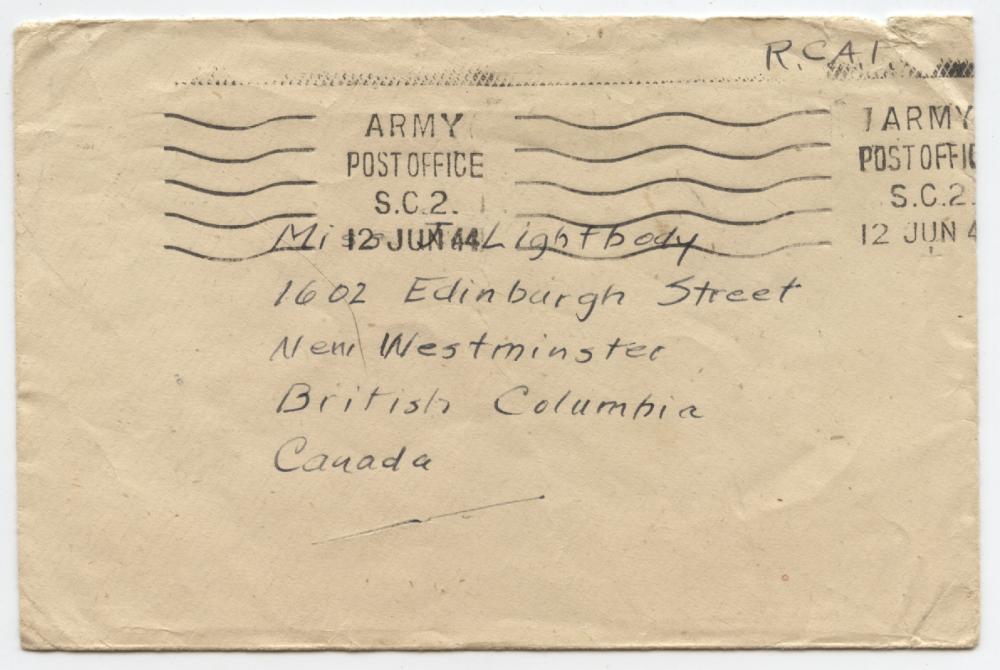 R.C.A.F.
ARMY
POST OFFICE
S.C.2.
12 JUN 44
ARMY
POST OFFIC
S.C.2.
12 JUN 4
Miss Lightbody
1602 Edinburgh Street
New Westminster
British Columbia
Canada